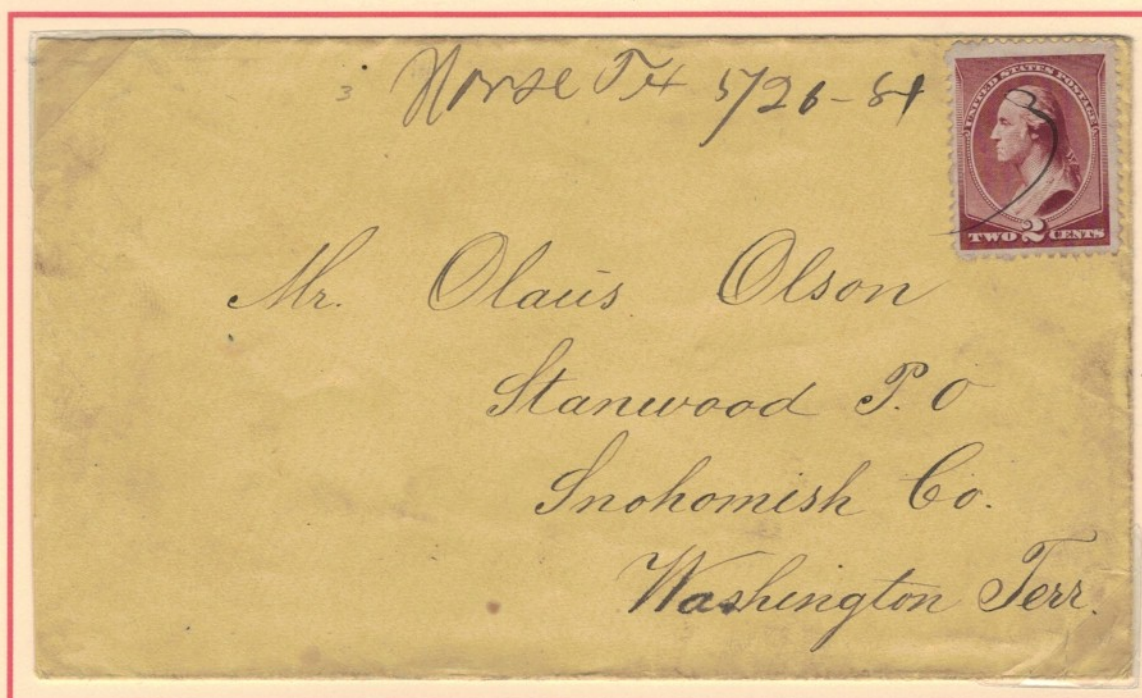 Norse Tex 5/26-84
UNITED STATES POSTAGE
TWO 2 CENTS
Mr. Olaus Olson
Stanwood P.O
Snohomish Co.
Washington Terr.